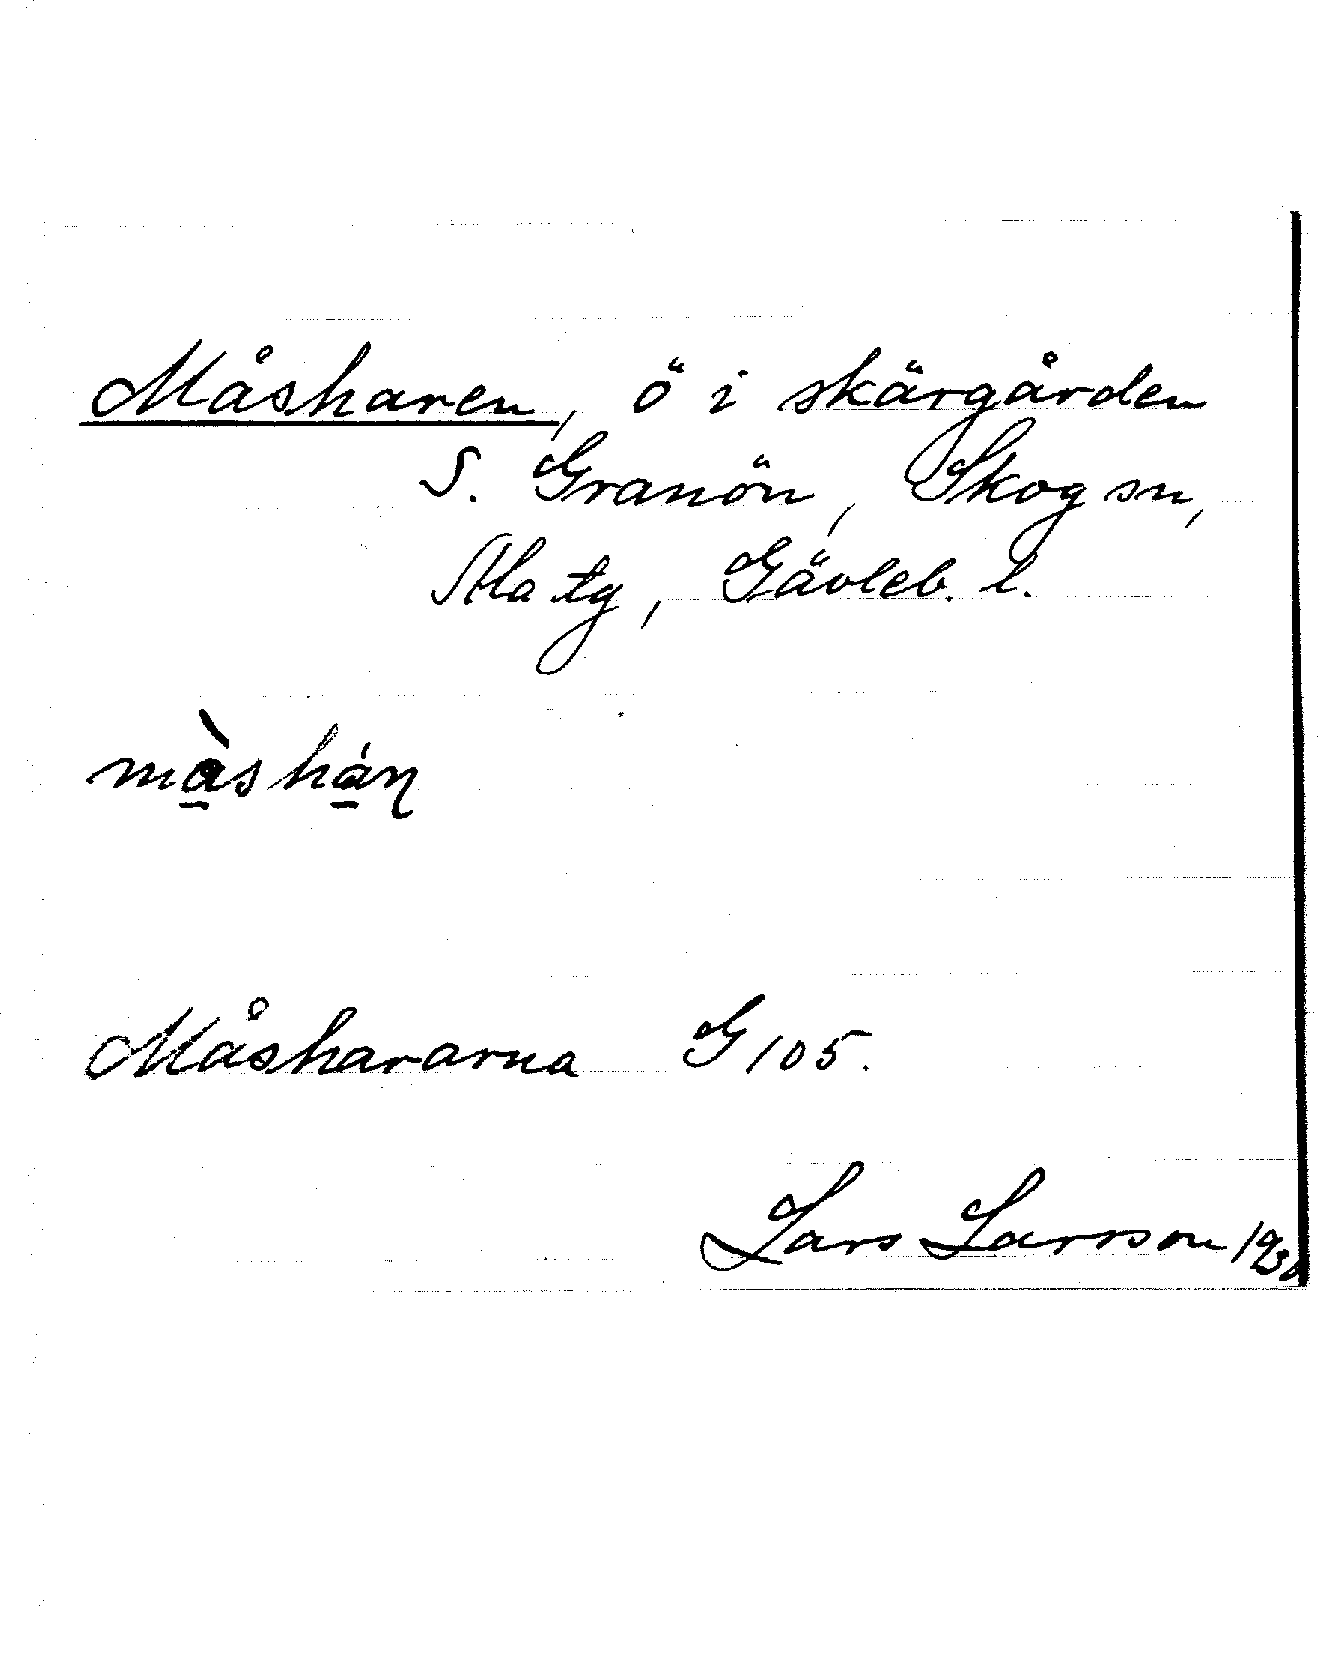 Måsharen, ö i skärgården
S. Granön, Skog sn,
Ala tg, Gävleb. l.
mà̱shá̱ṇ
Måshararna G 105.
Lars Larsson